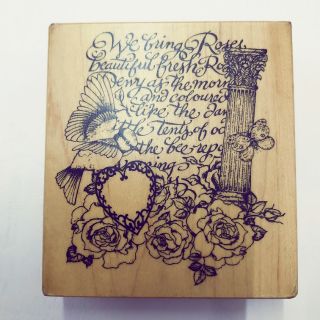 We bring Roses
beautiful fresh Ro
ewy as the morn
and coloured
like the da
the tents of oc
the bee repo